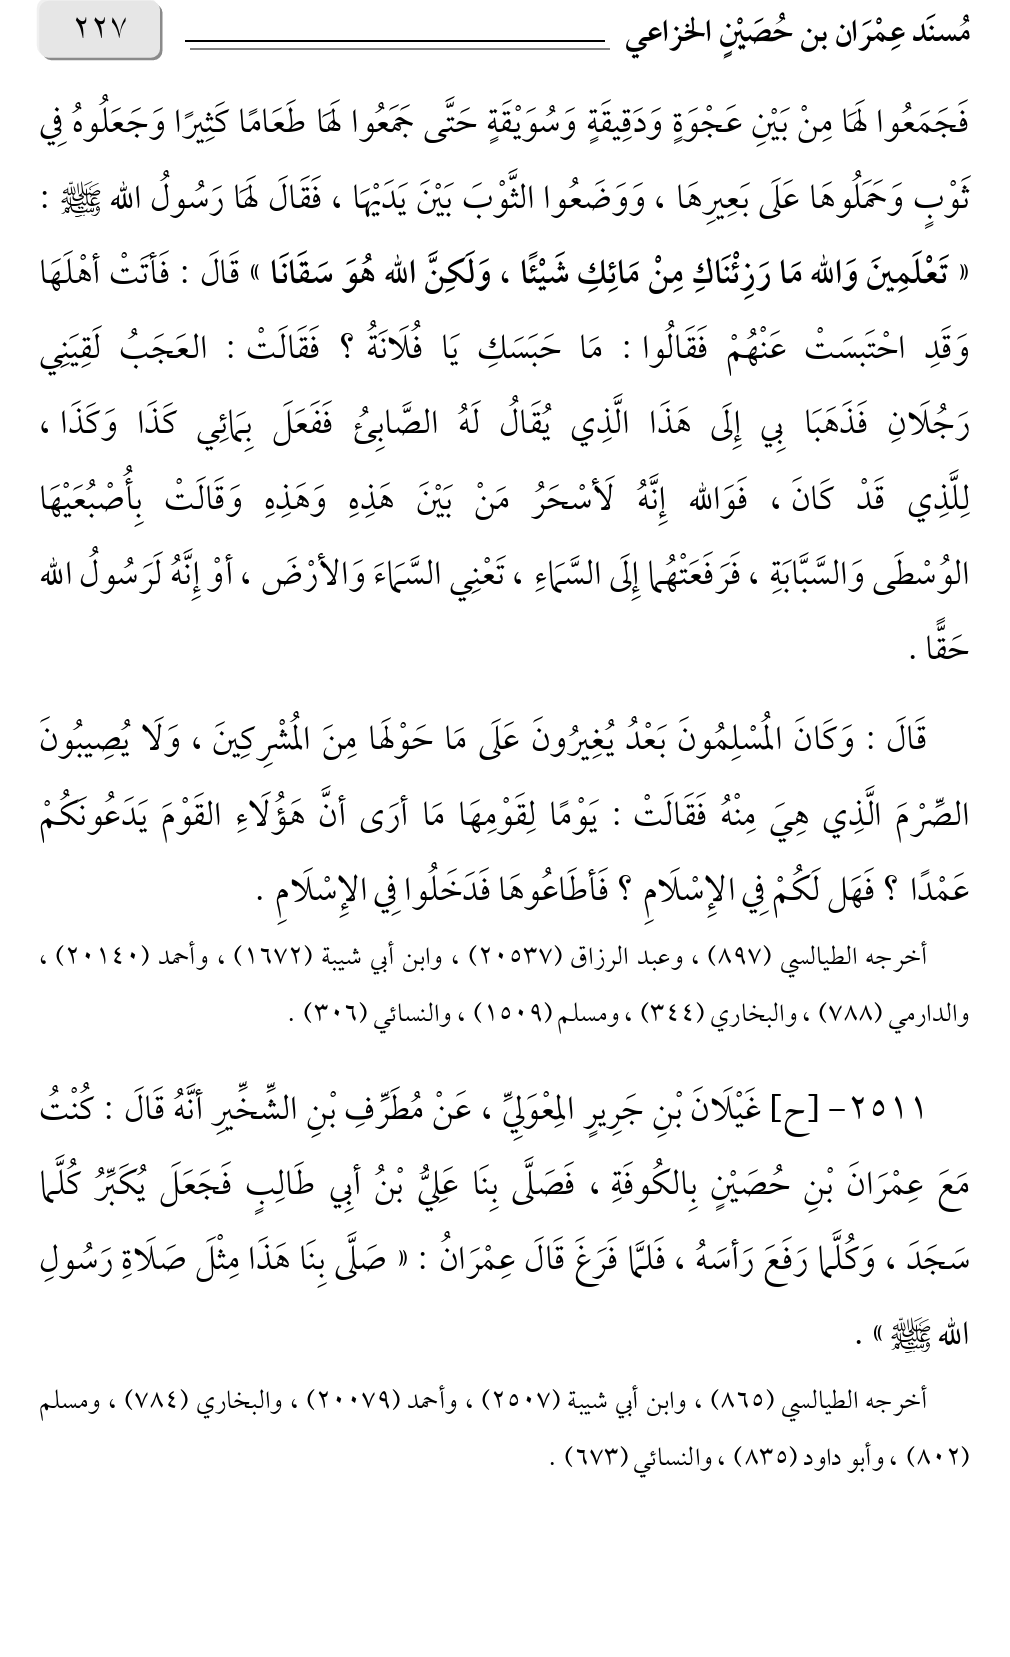 مُسنَد عِمْرَان بن حُصَيْنٍ الخزاعي ٢٢٧
فَجَمَعُوا لَهَا مِنْ بَيْنِ عَجْوَةٍ وَدَقِيقَةٍ وَسُوَيْقَةٍ حَتَّى جَمَعُوا لَهَا طَعَامًا كَثِيرًا وَجَعَلُوهُ فِي
ثَوْبٍ وَحَمَلُوهَا عَلَى بَعِيرِهَا ، وَوَضَعُوا الثَّوْبَ بَيْنَ يَدَيْهَا ، فَقَالَ لَهَا رَسُولُ الله ﷺ :
« تَعْلَمِينَ وَالله مَا رَزِئْنَاكِ مِنْ مَائِكِ شَيْئًا ، وَلَكِنَّ الله هُوَ سَقَانَا » قَالَ : فَأتَتْ أهْلَهَا
وَقَدِ احْتَبسَتْ عَنْهُمْ فَقَالُوا : مَا حَبَسَكِ يَا فُلَانَةُ ؟ فَقَالَتْ : العَجَبُ لَقِيَنِي
رَجُلَانِ فَذَهَبَا بِي إِلَى هَذَا الَّذِي يُقَالُ لَهُ الصَّابِئُ فَفَعَلَ بِمَائِي كَذَا وَكَذَا ،
لِلَّذِي قَدْ كَانَ ، فَوَالله إِنَّهُ لَأسْحَرُ مَنْ بَيْنَ هَذِهِ وَهَذِهِ وَقَالَتْ بِأُصْبُعَيْهَا
الوُسْطَى وَالسَّبَّابَةِ ، فَرَفَعَتْهُما إِلَى السَّمَاءِ ، تَعْنِي السَّمَاءَ وَالأرْضَ ، أوْ إِنَّهُ لَرَسُولُ الله
حَقًّا .
قَالَ : وَكَانَ المُسْلِمُونَ بَعْدُ يُغِيرُونَ عَلَى مَا حَوْلَهَا مِنَ المُشْرِكِينَ ، وَلَا يُصِيبُونَ
الصِّرْمَ الَّذِي هِيَ مِنْهُ فَقَالَتْ : يَوْمًا لِقَوْمِهَا مَا أرَى أنَّ هَؤُلَاءِ القَوْمَ يَدَعُونَكُمْ
عَمْدًا ؟ فَهَل لَكُمْ فِي الإِسْلَامِ ؟ فَأطَاعُوهَا فَدَخَلُوا فِي الإِسْلَامِ .
أخرجه الطيالسي (٨٩٧) ، وعبد الرزاق (٢٠٥٣٧) ، وابن أبي شيبة (١٦٧٢) ، وأحمد (٢٠١٤٠) ،
والدارمي (٧٨٨) ، والبخاري (٣٤٤) ، ومسلم (١٥٠٩) ، والنسائي (٣٠٦) .
٢٥١١- [ح] غَيْلَانَ بْنِ جَرِيرٍ المِعْوَلِيِّ ، عَنْ مُطَرِّفِ بْنِ الشِّخِّيرِ أنَّهُ قَالَ : كُنْتُ
مَعَ عِمْرَانَ بْنِ حُصَيْنٍ بِالكُوفَةِ ، فَصَلَّى بِنَا عَلِيُّ بْنُ أبِي طَالِبٍ فَجَعَلَ يُكَبِّرُ كُلَّما
سَجَدَ ، وَكُلَّما رَفَعَ رَأسَهُ ، فَلمَّا فَرَغَ قَالَ عِمْرَانُ : « صَلَّى بِنَا هَذَا مِثْلَ صَلَاةِ رَسُولِ
الله ﷺ » .
أخرجه الطيالسي (٨٦٥) ، وابن أبي شيبة (٢٥٠٧) ، وأحمد (٢٠٠٧٩) ، والبخاري (٧٨٤) ، ومسلم
(٨٠٢) ، وأبو داود (٨٣٥) ، والنسائي (٦٧٣) .